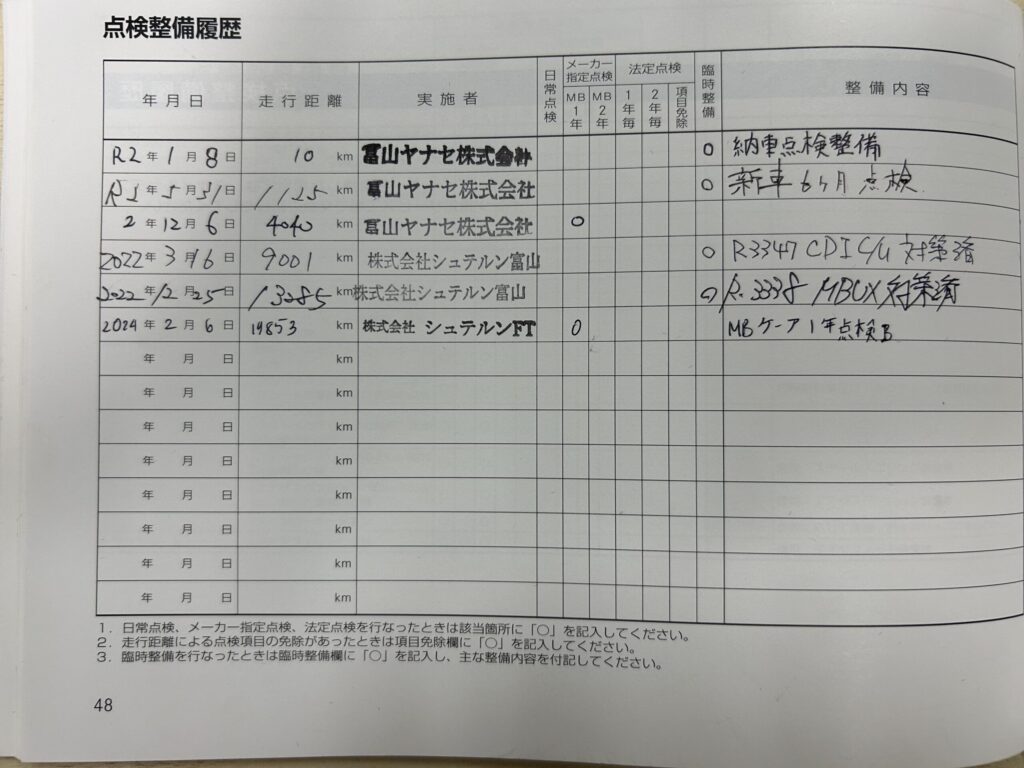 点検整備履歴
年月日 走行距離 実施者 日常点検 メーカー指定点検 MB1年 MB2年 法定点検 1年毎 2年毎 項目免除 臨時整備 整備内容
R2年1月8日 10 km 富山ヤナセ株式会社 ○ 納車点検整備
R2年5月31日 1125 km 富山ヤナセ株式会社 ○ 新車6ヶ月点検
2年12月6日 4040 km 富山ヤナセ株式会社 ○
2022年3月16日 9001 km 株式会社シュテルン富山 ○ R3347 CDI C/U 対策済
2022年12月25日 13285 km 株式会社シュテルン富山 ○ R.3338 MBUX対策済
2024年2月6日 19853 km 株式会社 シュテルンFT ○ MBケーア1年点検B
年 月 日 km
年 月 日 km
年 月 日 km
年 月 日 km
年 月 日 km
年 月 日 km
年 月 日 km
年 月 日 km
1．日常点検、メーカー指定点検、法定点検を行なったときは該当箇所に「○」を記入してください。
2．走行距離による点検項目の免除があったときは項目免除欄に「○」を記入してください。
3．臨時整備を行なったときは臨時整備欄に「○」を記入し、主な整備内容を付記してください。
48